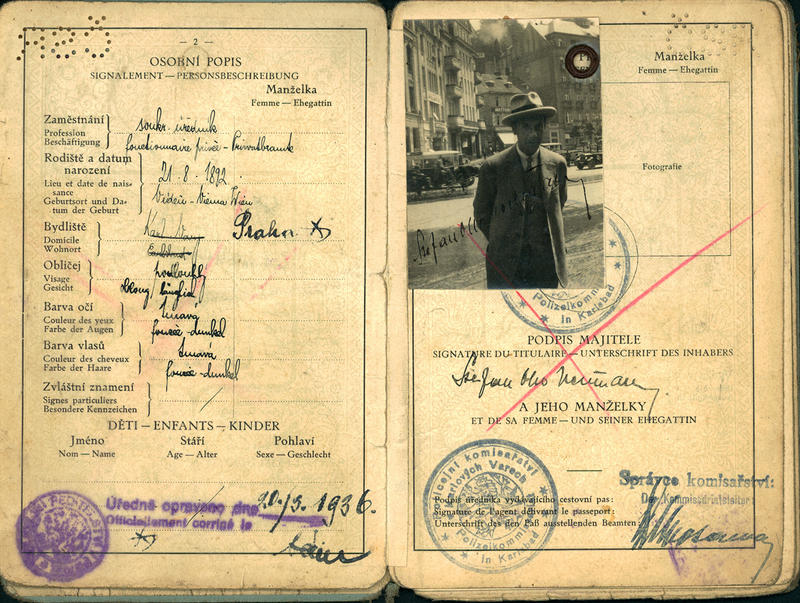 — 2 —
OSOBNÍ POPIS
SIGNALEMENT — PERSONSBESCHREIBUNG
Manželka
Femme — Ehegattin
Zaměstnání
Profession
Beschäftigung
soukr. úředník
fonctionnaire privée - Privatbeamte
Rodiště a datum
narození
Lieu et date de nais-
sance
Geburtsort und Da-
tum der Geburt
21. 8. 1892.
Vídeň - Vienna Wien
Bydliště
Domicile
Wohnort
Karl. Vary
Karlsbad
Praha
Obličej
Visage
Gesicht
oblong, länglich
Barva očí
Couleur des yeux
Farbe der Augen
tmavá
foncée - dunkel
Barva vlasů
Couleur des cheveux
Farbe der Haare
tmavá
foncée - dunkel
Zvláštní znamení
Signes particuliers
Besondere Kennzeichen
DĚTI — ENFANTS — KINDER
Jméno
Nom — Name
Stáří
Age — Alter
Pohlaví
Sexe — Geschlecht
Úředně opraveno dne
Officiellement corrigé le
20/5. 1936.
Manželka
Femme — Ehegattin
Fotografie
Polizeikomm
in Karlsbad
PODPIS MAJITELE
SIGNATURE DU TITULAIRE — UNTERSCHRIFT DES INHABERS
Štefan Otto Neumann
A JEHO MANŽELKY
ET DE SA FEMME — UND SEINER EHEGATTIN
Správce komisařství:
Der Kommissariatsleiter:
Podpis úředníka vydávajícího cestovní pas:
Signature de l'agent délivrant le passeport:
Unterschrift des den Paß ausstellenden Beamten:
Policejní komisařství
Karlových Varech
Polizeikomm
in Karlsbad